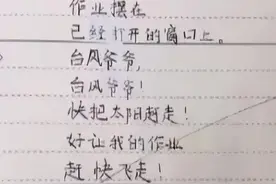 作业摆在
已经打开的窗口上。
台风爷爷,
台风爷爷!
快把太阳赶走!
好让我的作业
赶快飞走!